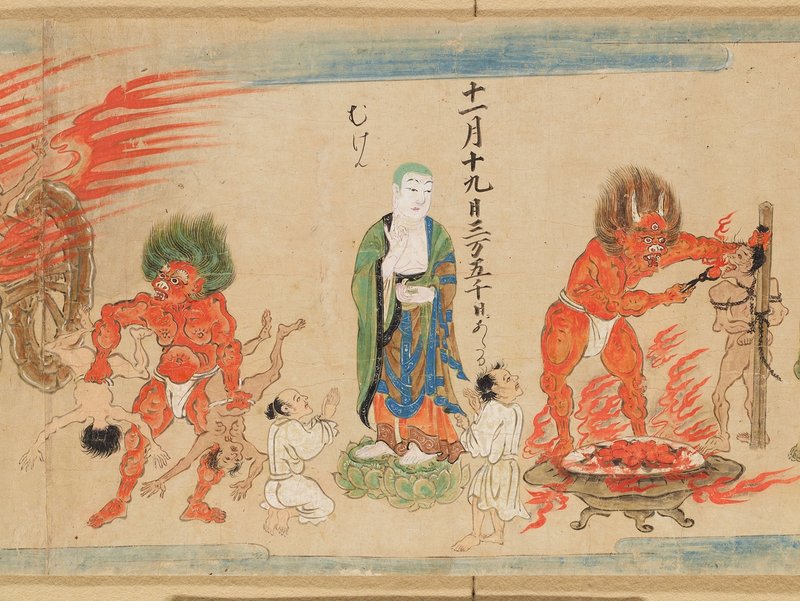 十一月十九日三万五千日にあたる
むけん